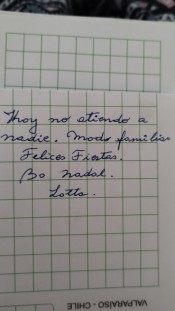 Hoy no atiendo a
nadie. Modo familia
Felices Fiestas.
Bo Nadal.
Lotta.
VALPARAISO - CHILE